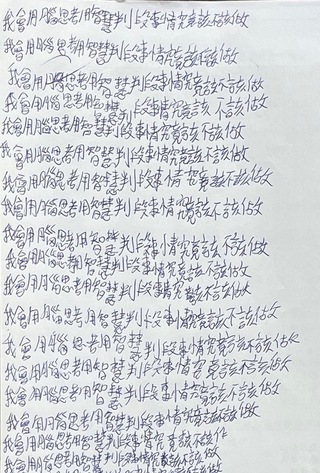 我會用腦思考用智慧判段事情究竟該不該做
我會用腦思考用智慧判段事情究竟該不該做
我會用腦思考用智慧判段事情究竟該不該做
我會用腦思考用智慧判段事情究竟該不該做
我會用腦思考用智慧判段事情究竟該不該做
我會用腦思考用智慧判段事情究竟該不該做
我會用腦思考用智慧判段事情究竟該不該做
我會用腦思考用智慧判段事情究竟該不該做
我會用腦思考用智慧判段事情究竟該不該做
我會用腦思考用智慧判段事情究竟該不該做
我會用腦思考用智慧判段事情究竟該不該做
我會用腦思考用智慧判段事情究竟該不該做
我會用腦思考用智慧判段事情究竟該不該做
我會用腦思考用智慧判段事情究竟該不該做
我會用腦思考用智慧判段事情究竟該不該做
我會用腦思考用智慧判段事情究竟該不該做
我會用腦思考用智慧判段事情究竟該不該作
我會用腦思考用智慧判段事情究竟該不該做